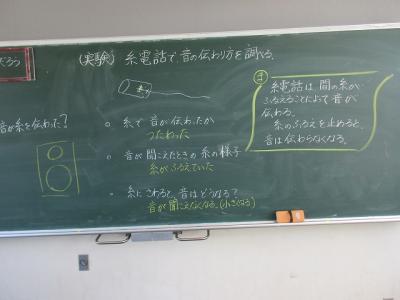 だろう
(実験) 糸電話で、音の伝わり方を調べる。
音が糸を伝わった?
○ 糸で音が伝わったか
つたわった
○ 音が聞こえたときの糸の様子
糸がふるえていた
○ 糸にさわると、音はどうなる?
音が聞こえなくなる。(小さくなる)
ま
糸電話は、間の糸が
ふるえることによって音が
伝わる。
糸のふるえを止めると、
音は伝わらなくなる。